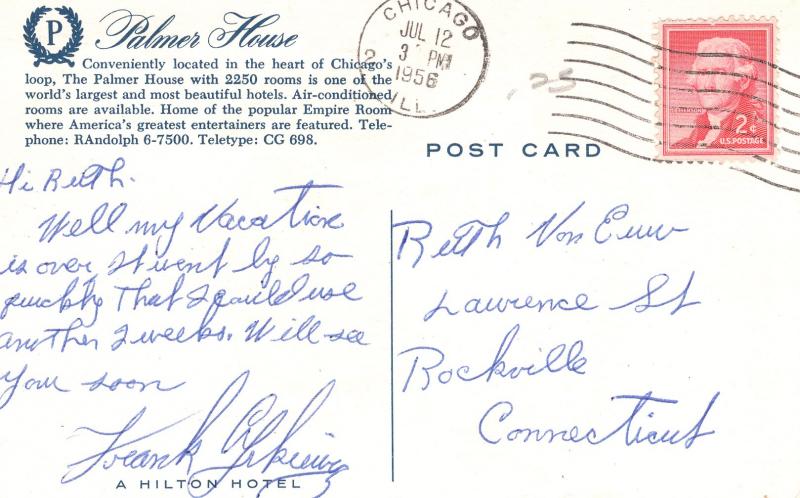 P
Palmer House
Conveniently located in the heart of Chicago's
loop, The Palmer House with 2250 rooms is one of the
world's largest and most beautiful hotels. Air-conditioned
rooms are available. Home of the popular Empire Room
where America's greatest entertainers are featured. Tele-
phone: RAndolph 6-7500. Teletype: CG 698.
CHICAGO
JUL 12
3 PM
1956
2
ILL.
.25
2¢
U.S. POSTAGE
POST CARD
Hi Ruth.
Well my Vacation
is over. It went by so
quickly That I could use
another 2 weeks. Will see
you soon
Frank
A HILTON HOTEL
Ruth Von Euw
Lawrence St
Rockville
Connecticut